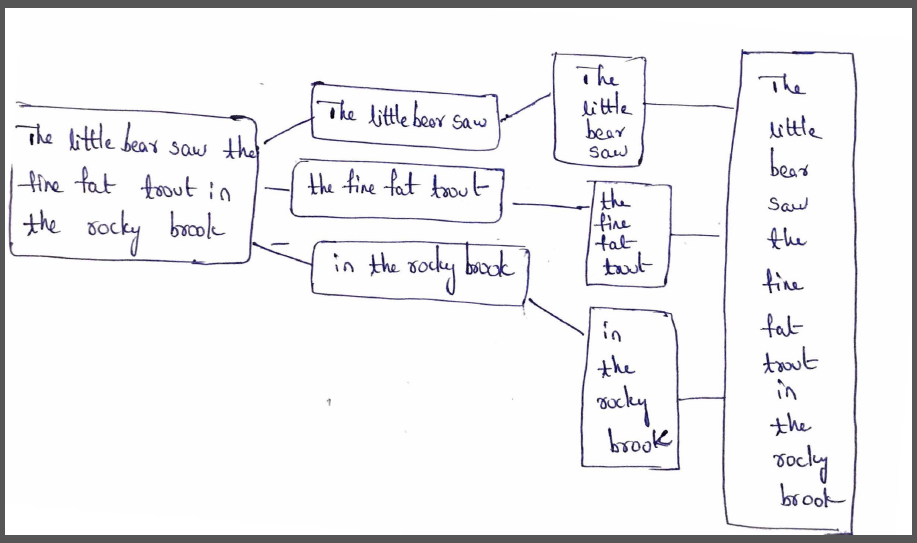 The little bear saw the
fine fat trout in
the rocky brook
The little bear saw
the fine fat trout
in the rocky brook
The
little
bear
saw
the
fine
fat
trout
in
the
rocky
brook
The
little
bear
saw
the
fine
fat
trout
in
the
rocky
brook